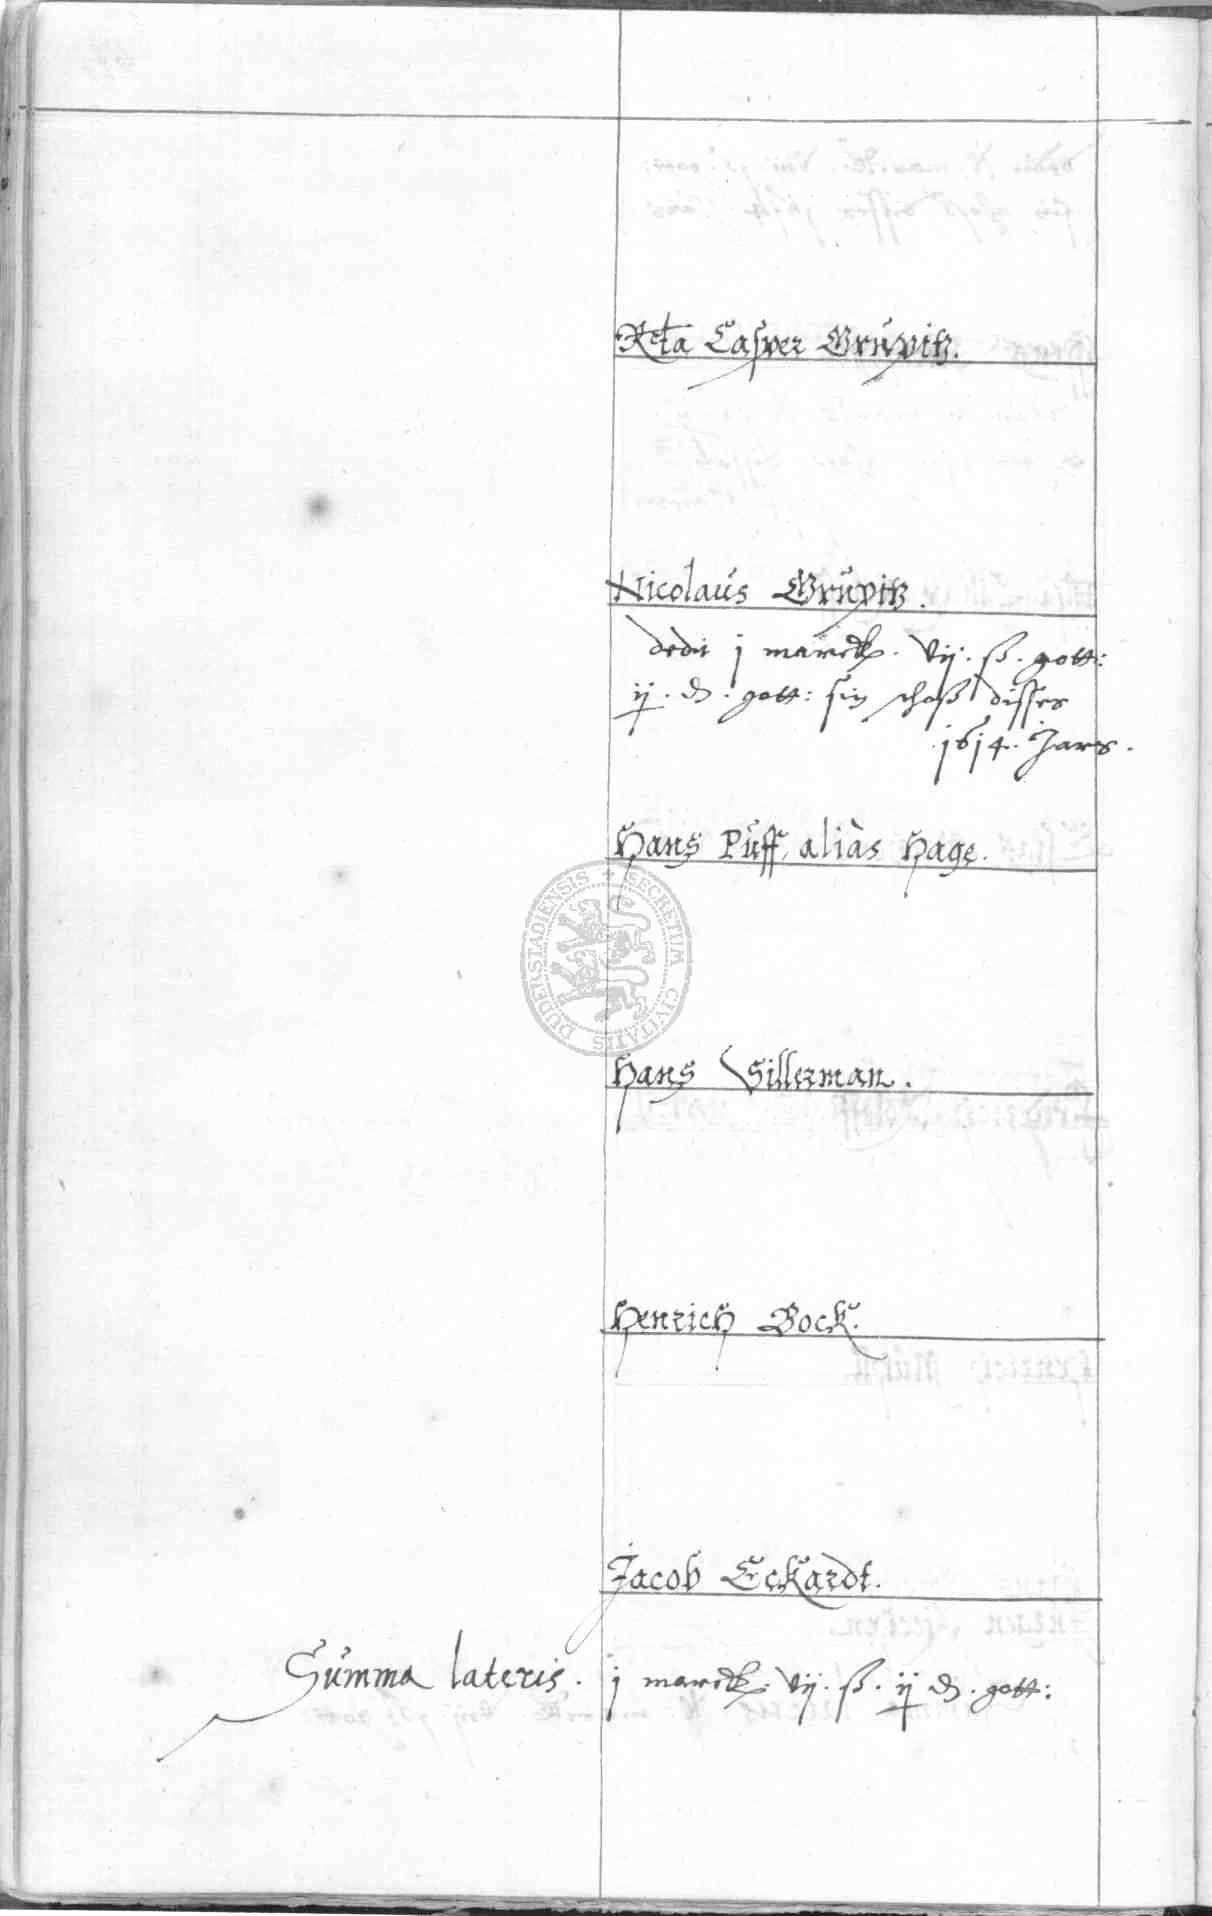 Rcta Casper Grupitz.
Nicolaus Grupitz.
dedit j marck. vij. ß. gott:
ij. d. gott: sin schoß disses
1614. Jars.
Hans Puff, aliàs Hage.
SECRETUM CIVITATIS DUDERSTADIENSIS
Hans Sillerman.
Henrich Bock.
Jacob Eckardt.
Summa lateris. j marck. vij. ß. ij d. gott: